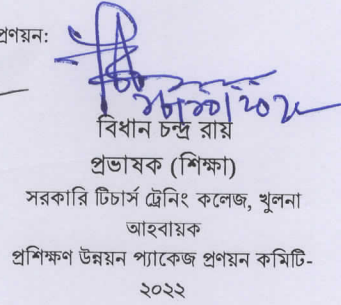 প্রণয়ন:
বিধান চন্দ্র রায়
প্রভাষক (শিক্ষা)
সরকারি টিচার্স ট্রেনিং কলেজ, খুলনা
আহবায়ক
প্রশিক্ষণ উন্নয়ন প্যাকেজ প্রণয়ন কমিটি-
২০২২